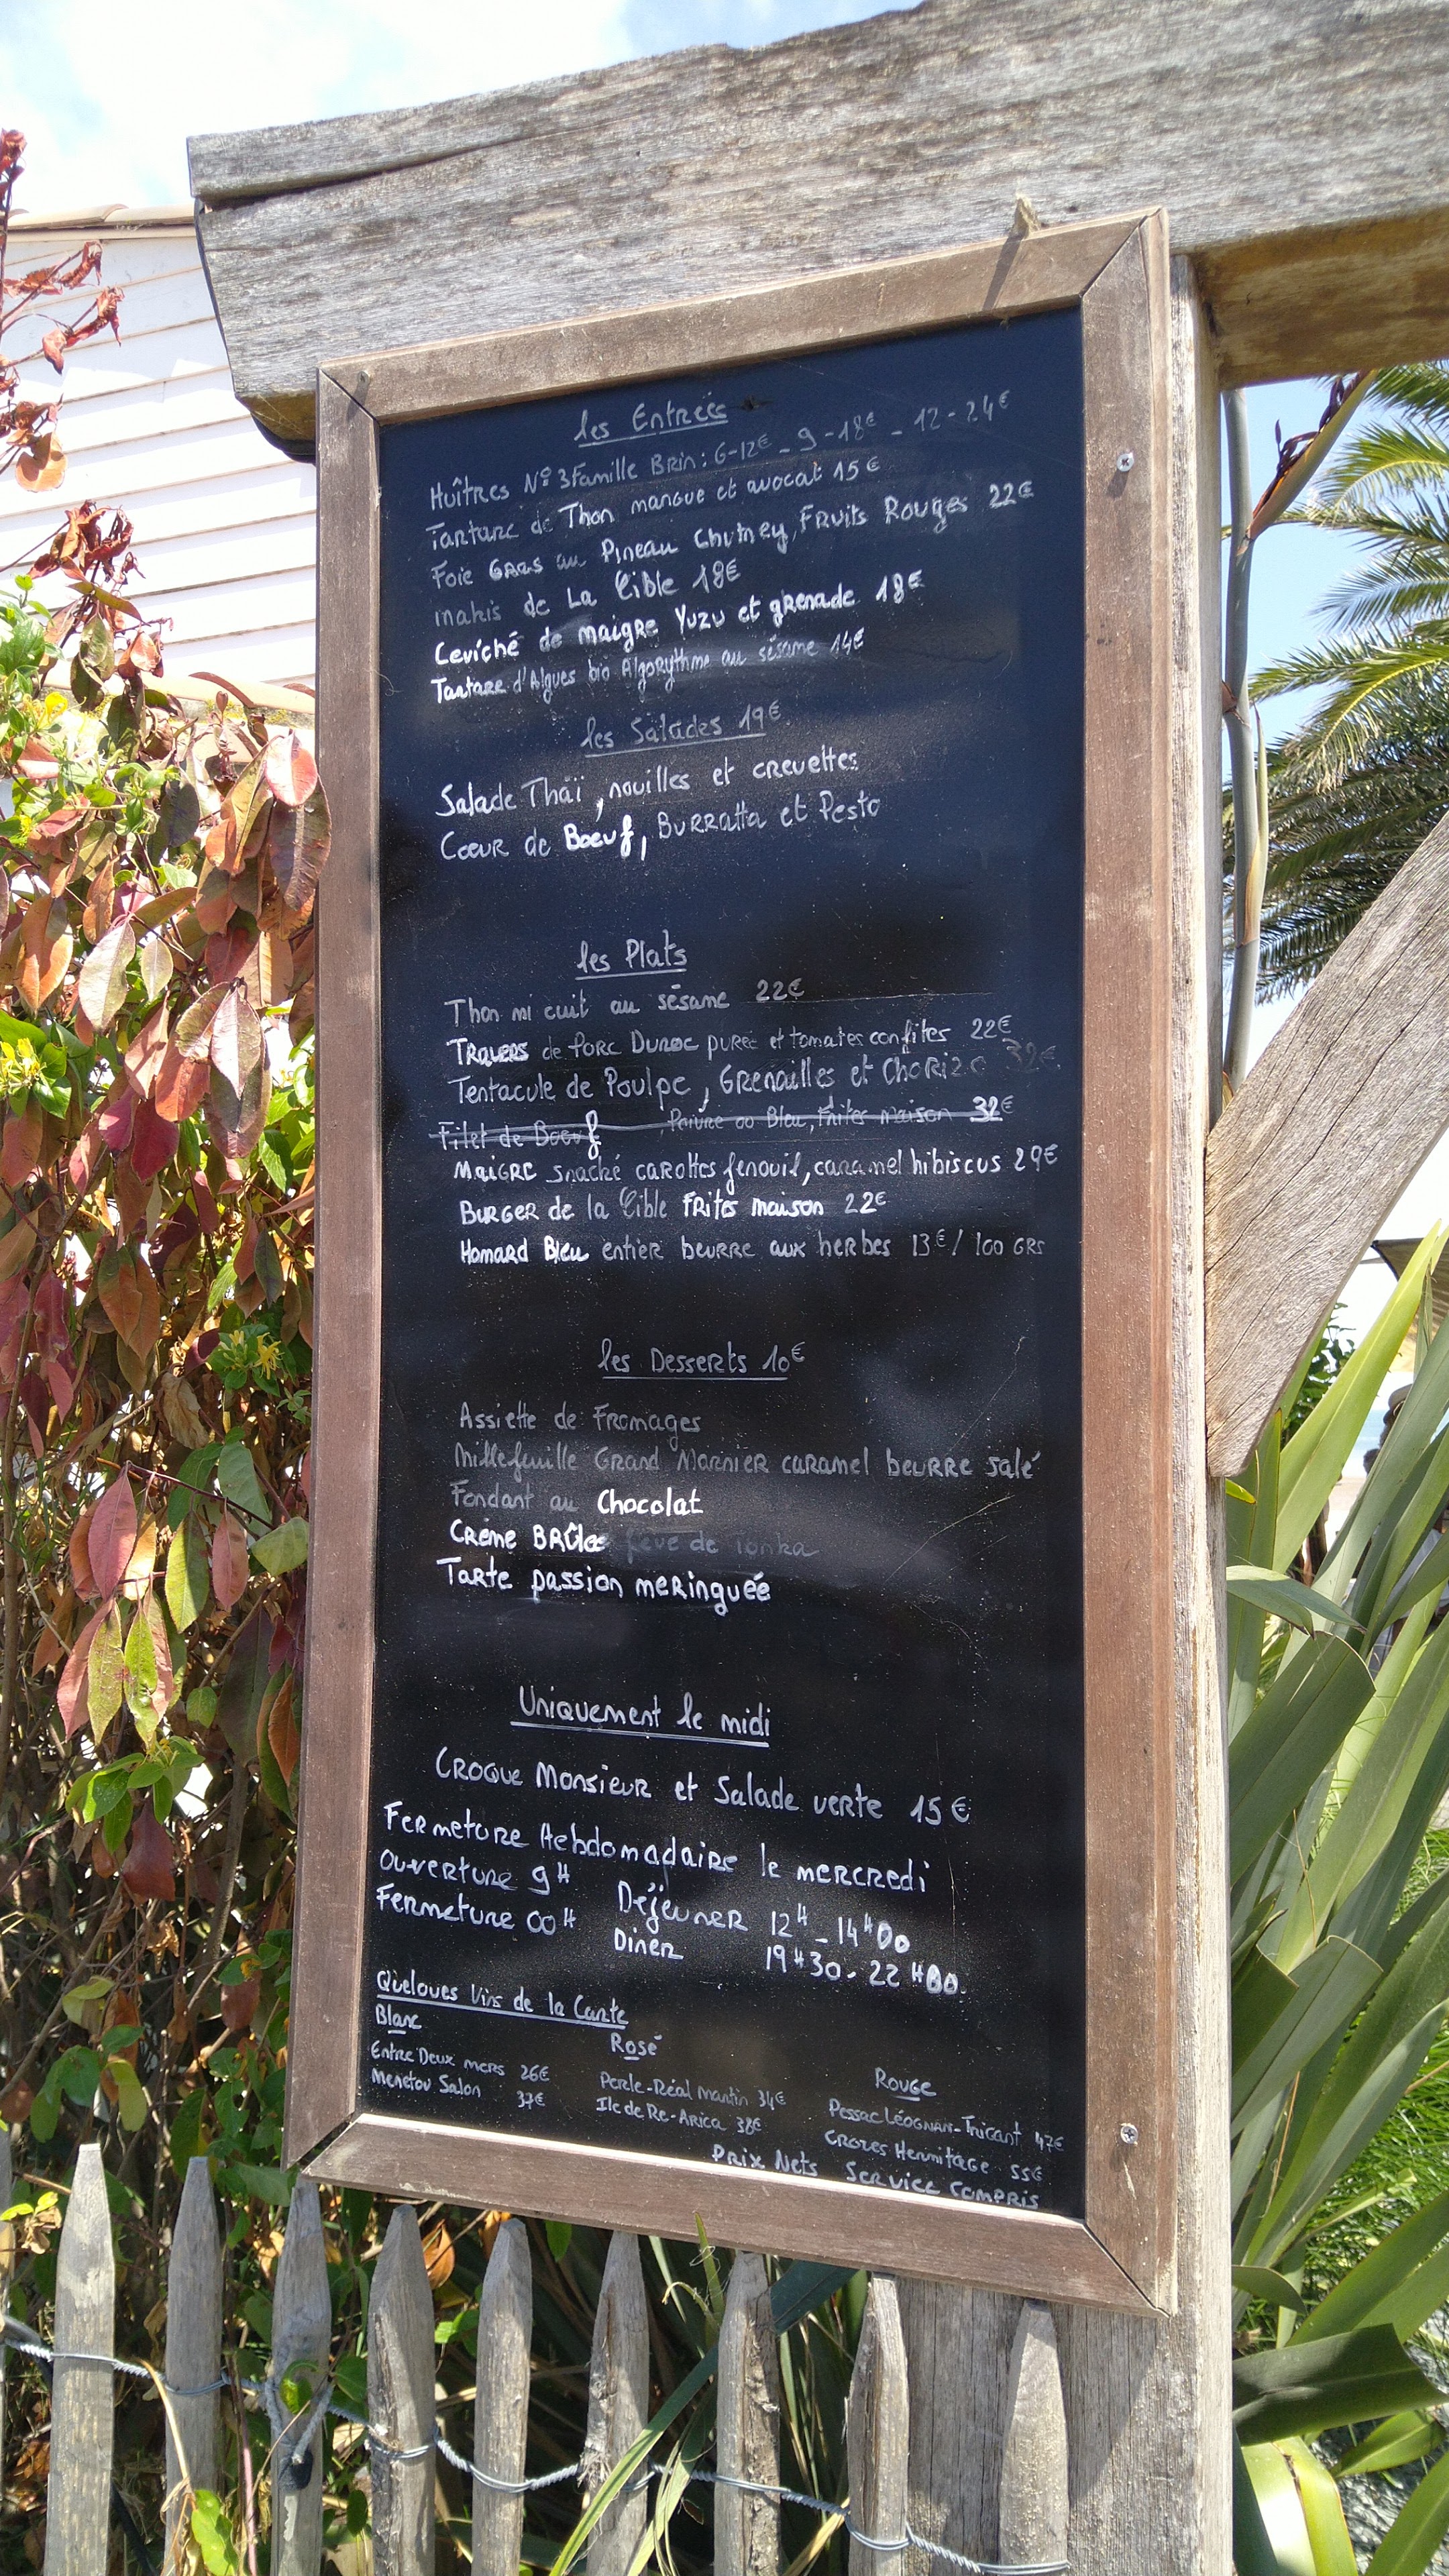 les Entrées
Huîtres N° 3 Famille Brin : 6-12€ - 9-18€ - 12-24€
Tartare de Thon mangue et avocat 15€
Foie Gras au Pineau Chutney, Fruits Rouges 22€
makis de La Cible 18€
Ceviché de maigre Yuzu et grenade 18€
Tartare d'Algues bio Algorythme au sésame 14€
les Salades 19€
Salade Thaï, nouilles et crevettes
Coeur de Boeuf, Burratta et Pesto
les Plats
Thon mi cuit au sésame 22€
Travers de Porc Duroc purée et tomates confites 22€
Tentacule de Poulpe, Grenailles et Chorizo 32€
Filet de Boeuf, Poivre ou Bleu, Frites maison 32€
Maigre snacké carottes fenouil, caramel hibiscus 29€
Burger de la Cible Frites maison 22€
Homard Bleu entier beurre aux herbes 13€/ 100 GRS
les Desserts 10€
Assiette de Fromages
Millefeuille Grand Marnier caramel beurre salé
Fondant au Chocolat
Crème Brûlée fève de Tonka
Tarte passion meringuée
Uniquement le midi
Croque Monsieur et Salade verte 15€
Fermeture Hebdomadaire le mercredi
Ouverture 9H Déjeuner 12H - 14H00
Fermeture 00H Diner 19H30 - 22H00
Quelques Vins de la Carte
Blanc Rosé Rouge
Entre Deux mers 26€ Perle-Réal Martin 34€ Pessac Léognan-Tricant 47€
Menetou Salon 37€ Ile de Re-Arica 38€ Crozes Hermitage 55€
Prix Nets Service Compris